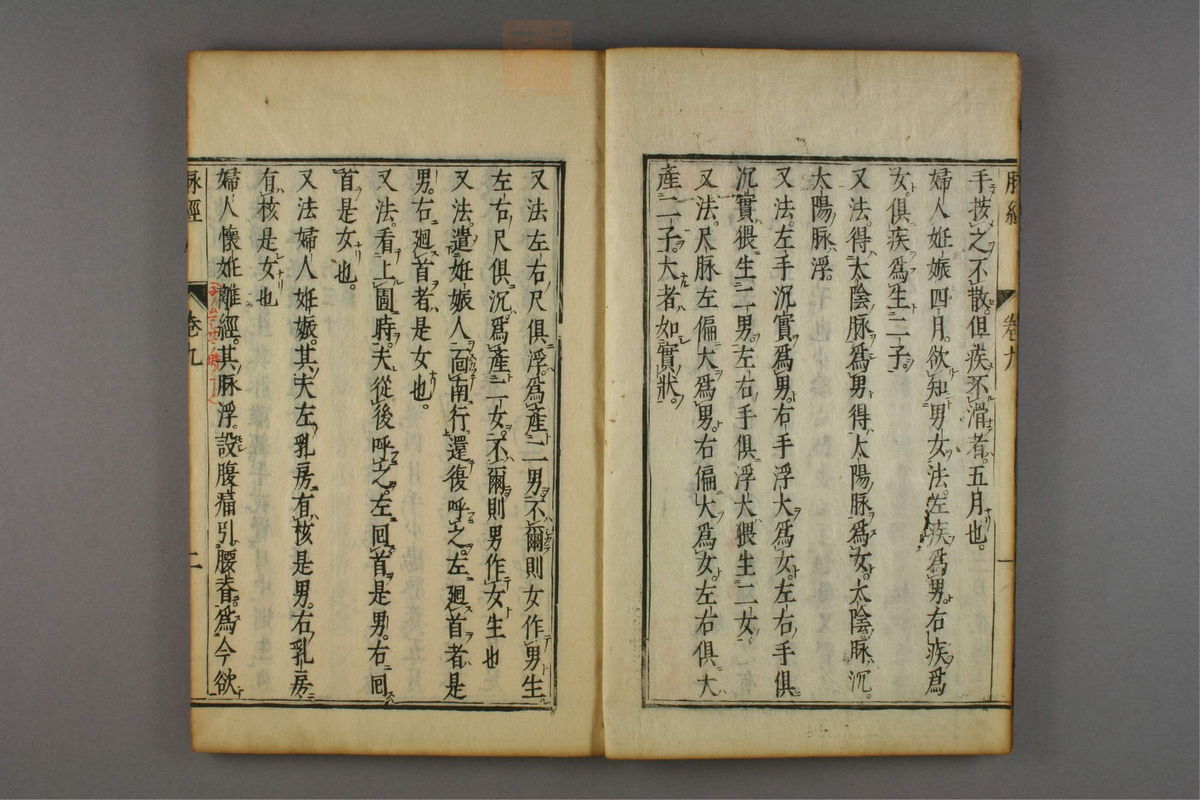 手按之不散但疾不滑者五月也
婦人妊娠四月欲知男女法左疾爲男右疾爲
女俱疾爲生二子
又法得太陰脉爲男得太陽脉爲女太陰脉沉
太陽脉浮
又法左手沉實爲男右手浮大爲女左右手俱
沉實猥生二男左右手俱浮大猥生二女
又法尺脉左偏大爲男右偏大爲女左右俱大
產二子大者如實狀
又法左右尺俱浮爲產二男不爾則女作男生
左右尺俱沉爲產二女不爾則男作女生也
又法遣妊娠人面南行還復呼之左廻首者是
男右廻首者是女也
又法看上圊時夫從後呼之左回首是男右回
首是女也
又法婦人妊娠其夫左乳房有核是男右乳房
有核是女也
婦人懷妊離經其脉浮設腹痛引腰脊爲今欲
脉經
卷九
二